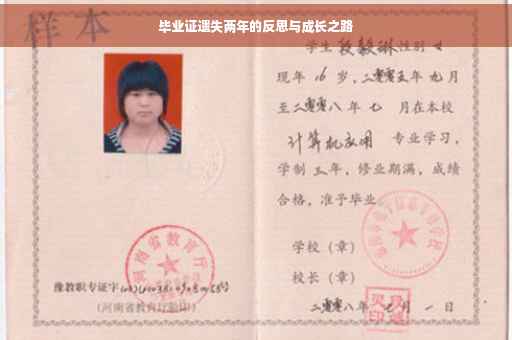 毕业证遗失两年的反思与成长之路
样本
学生 段毅琳 性别 女
现年 16 岁，二零零五年 九 月
至二零零八年 七 月在本校
计算机应用 专业学习，
学制 三 年，修业期满，成绩
合格，准予毕业。
学校（章）
校长（章）
二零零八年 七 月 一 日
河南省教育厅
豫教职专证字
（河南省教育厅验印）